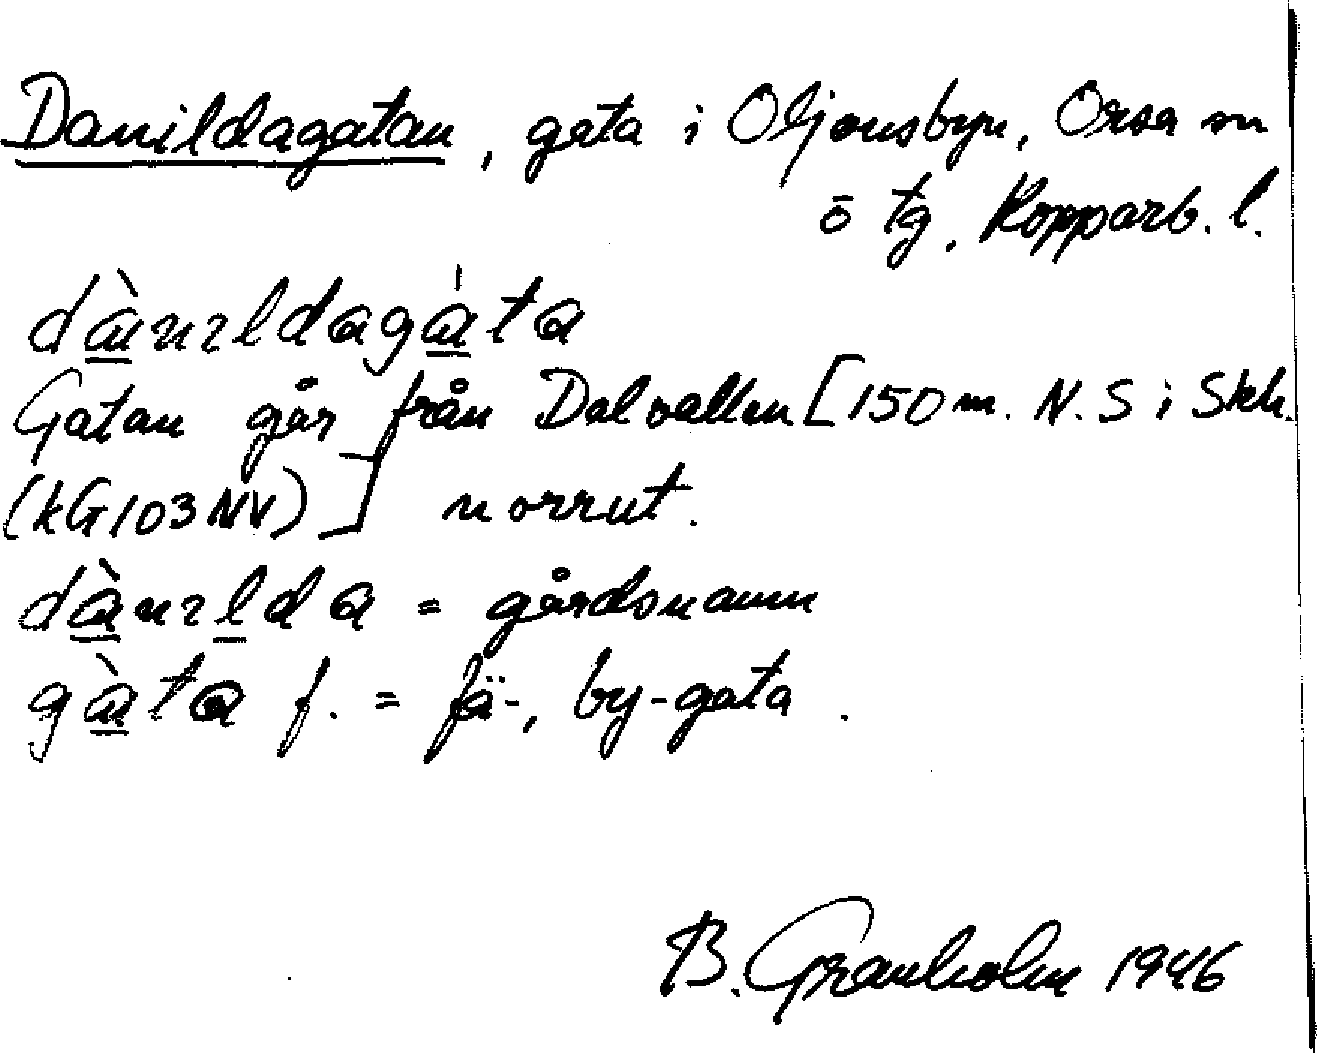 Danildagatan, gata i Oljonsbyn, Orsa sn
ö tg. Kopparb. l.
dànɩldagáta
Gatan går från Dalvallen [150 m. N. S i Skh.
(kG103NV)] norrut.
dànɩlda = gårdsnamn
gàta f. = fä-, by-gata.
B. Granholm 1946